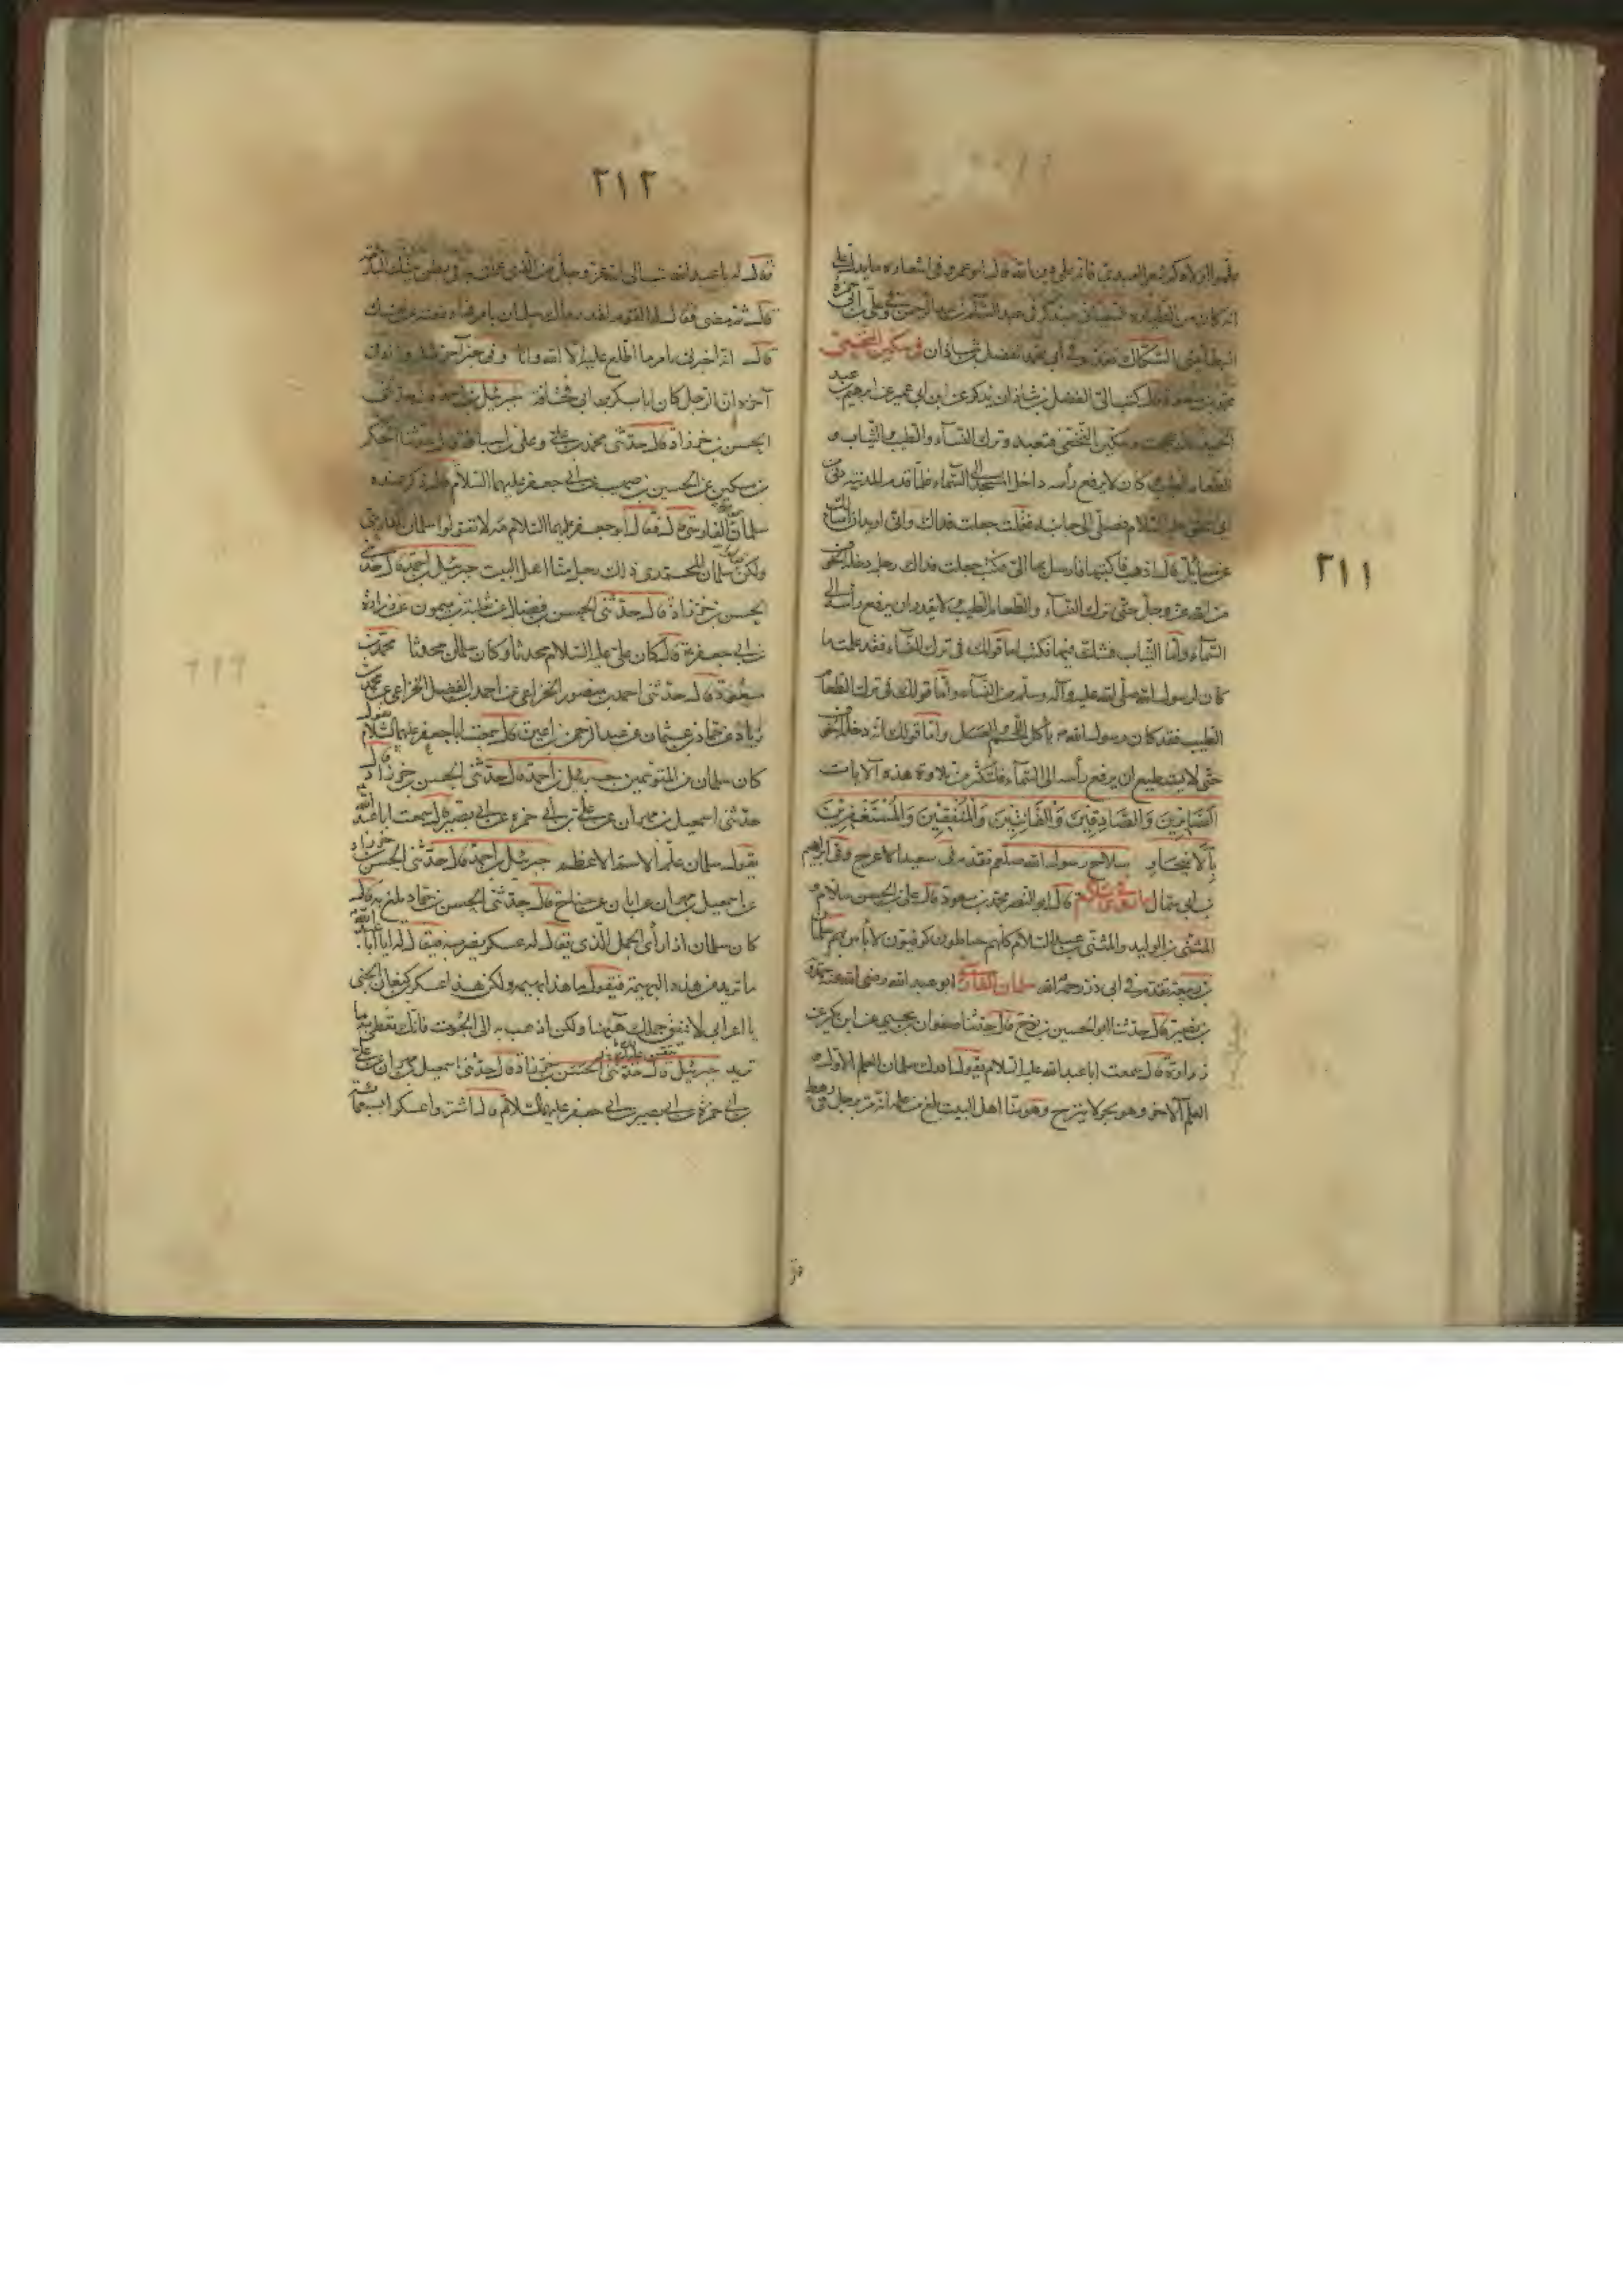 ٢١١
علموا اولادكم شعر العبدى فانه على دين الله قال ابو عمرو فى اشعاره ما يدل على
انه كان من الطيارة
السكاك فى ابى محمد الفضل بن شاذان فى سكين النخعى
محمد بن مسعود قال كتب الى الفضل بن شاذان يذكر عن ابن ابى عمير عن ابرهيم بن عبد
الحميد قال حججت وسكين النخعى فتعبد وترك النسآء والطيب والثياب و
الطعام الطيب وكان لا يرفع رأسه داخل المسجد الى السماء فلما قدم المدينة دنى من
ابى اسحق عليه السلام فصلى الى جانبه فقلت جعلت فداك وانى اريد ان اسألك
عن مسائل قال اذهب فاكتبها فارسل بها الى فكتب جعلت فداك رجل دخله الخوف
من الله عز وجل حتى ترك النسآء والطعام الطيب ولا يقدر ان يرفع رأسه الى
السمآء واما الثياب فشك فيها فكتب اما قولك فى ترك النساء فقد علمت ما
كان لرسول الله صلى الله عليه وآله وسلم من النسآء واما قولك فى ترك الطعام
الطيب فقد كان رسول الله ص يأكل اللحم والعسل واما قولك انه دخله الخوف
حتى لا يستطيع ان يرفع رأسه الى السمآء فليكثر من تلاوة هذه الآيات
الصَّابِرِينَ وَالصَّادِقِينَ وَالْقَانِتِينَ وَالْمُنْفِقِينَ وَالْمُسْتَغْفِرِينَ
بِالْاَسْحَارِ سلاح رسول الله صلعم تقدم فى سعيد الاعرج وفى ابرهيم
بن ابى سمال قال ابو النضر محمد بن مسعود قال على بن الحسن سلام و
المثنى بن الوليد والمثنى بن عبد السلام كلهم حناطون كوفيون لا بأس بهم سلمان
بن ربيعة تقدم فى ابى ذر رحمه الله سلمان الفارسى ابو عبد الله رضى الله عنه
بن نصير قال حدثنا ابو الحسين بن نوح قال حدثنا صفوان بن يحيى عن ابن بكير عن
زرارة قال سمعت ابا عبد الله عليه السلام يقول ادرك سلمان العلم الاول و
العلم الآخر وهو بحر لا ينزح وهو منا اهل البيت بلغ من علمه انه مر برجل فى رهط
٢١٢
فقال له يا عبد الله تب الى الله عز وجل من الذى عملت به فى بطن بيتك البارحة
قال ثم مضى فقال له القوم لقد رماك سلمان بامر فما دفعته عن نفسك
قال انه اخبرنى بامر ما اطلع عليه الا الله وانا وفى خبر آخر مثله وزاد فى
آخره ان الرجل كان ابا بكر بن ابى قحافة جبرئيل بن احمد قال حدثنى
الحسن بن خرزاد قال حدثنى محمد بن على وعلى بن اسباط قالا حدثنا الحكم
بن مسكين عن الحسين بن صهيب عن ابى جعفر عليهما السلام قال ذكر عنده
سلمان الفارسى قال فقال ابو جعفر عليهما السلام مه لا تقولوا سلمان الفارسى
ولكن قولوا سلمان المحمدى ذلك رجل منا اهل البيت جبرئيل بن احمد قال حدثنى
الحسن بن خرزاد قال حدثنى الحسن بن فضال عن ثعلبة بن ميمون عن زرارة
عن ابى جعفر ع قال كان على عليه السلام محدثا وكان سلمان محدثا محمد بن
مسعود قال حدثنى احمد بن منصور الخزاعى عن احمد بن الفضل الخزاعى عن محمد بن
زياد عن حماد بن عثمان عن عبد الرحمن بن اعين قال سمعت ابا جعفر عليهما السلام يقول
كان سلمان من المتوسمين جبرئيل بن احمد قال حدثنى الحسن بن خرزاد قال
حدثنى اسمعيل بن مهران عن على بن ابى حمزه عن ابى بصير قال سمعت ابا عبد الله ع
يقول سلمان علم الاسم الاعظم جبرئيل بن احمد قال حدثنى الحسن بن خرزاد
عن اسمعيل بن مهران عن ابان عن جناح قال حدثنى الحسن بن حماد بلغ به قال
كان سلمان اذا رأى الجمل الذى يقال له عسكر يضربه فيقال له يا ابا عبد الله
ما تريد من هذه البهيمة فيقول ما هذا بهيمة ولكن هذا عسكر بن كنعان الجنى
يا اعرابى لا تنفق جملك هيهنا ولكن اذهب به الى الحوءب فانك تعطى به ما
تريد جبرئيل قال حدثنى الحسن بن خرزاد قال حدثنى اسمعيل بن مهران عن على
بن ابى حمزة عن ابى بصير عن ابى جعفر عليهما السلام قال اشتروا عسكرا بسبعمائة